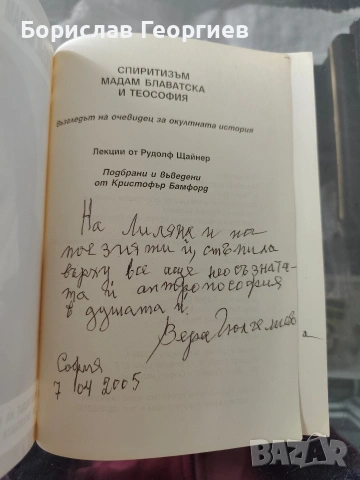 Борислав Георгиев
СПИРИТИЗЪМ
МАДАМ БЛАВАТСКА
И ТЕОСОФИЯ
Възгледът на очевидец за окултната история
Лекции от Рудолф Щайнер
Подбрани и въведени
от Кристофър Бамфорд
На Лиляна и на
поезията ѝ, стъпила
върху все още неосъзната-
та ѝ антропософия
в душата ѝ.
Вера Гюлгелиева
София
7 04 2005
BAZAR
bg